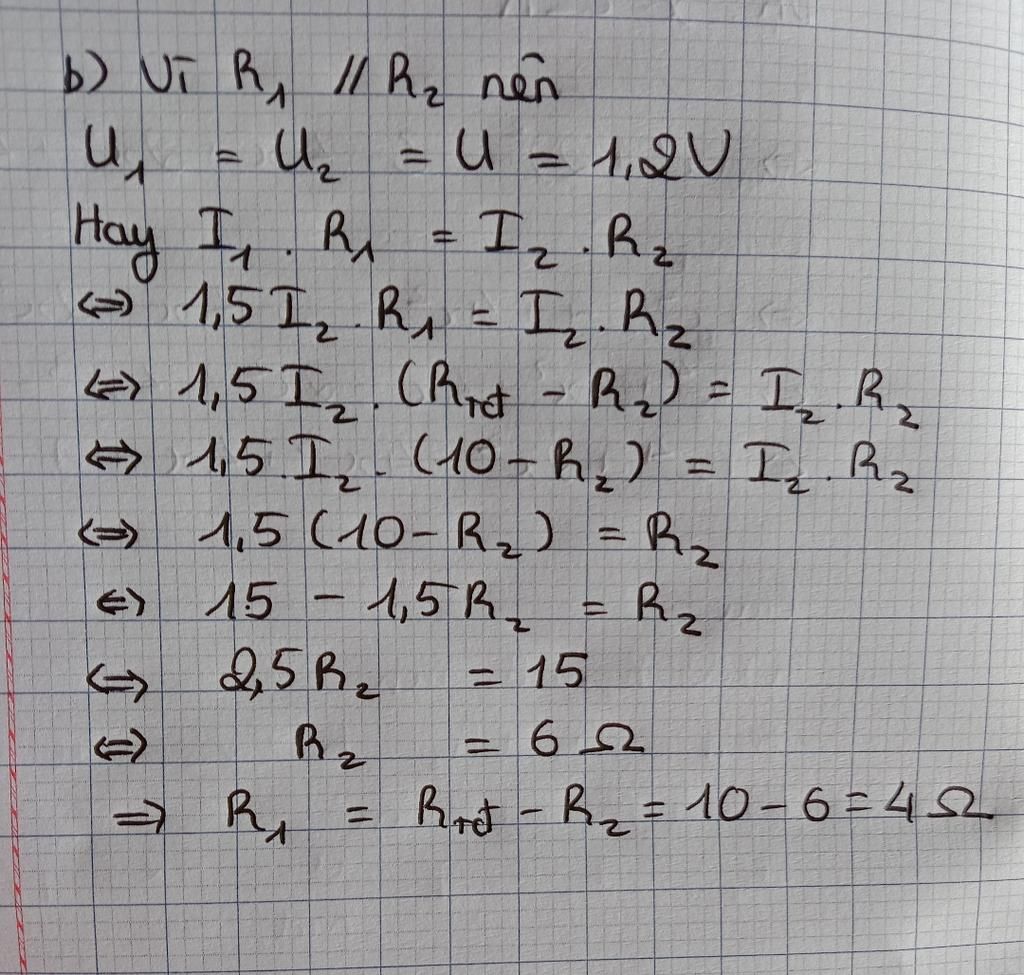 b) Vì R₁ // R₂ nên
U₁ = U₂ = U = 1,2V
Hay I₁ . R₁ = I₂ . R₂
⇔ 1,5 I₂ . R₁ = I₂ . R₂
⇔ 1,5 I₂ . (Rₙₜ - R₂) = I₂ . R₂
⇔ 1,5 I₂ . (10 - R₂) = I₂ . R₂
⇔ 1,5 (10 - R₂) = R₂
⇔ 15 - 1,5 R₂ = R₂
⇔ 2,5 R₂ = 15
⇔ R₂ = 6 Ω
⇒ R₁ = Rₙₜ - R₂ = 10 - 6 = 4 Ω